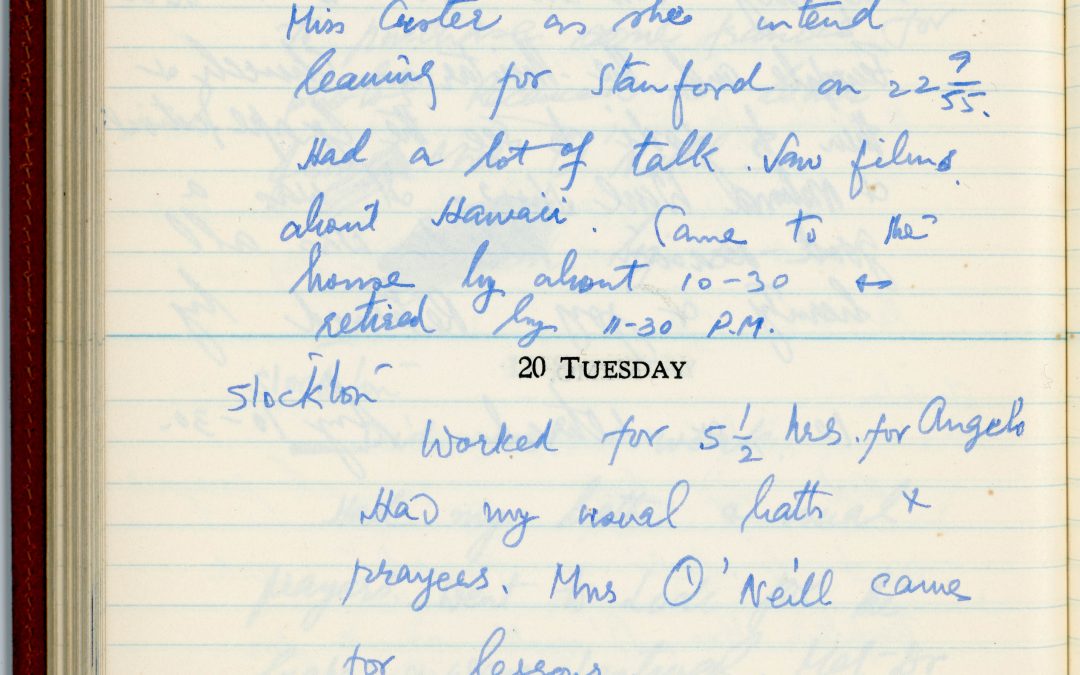 Miss Custer as she intend
leaving for Stanford on 22 9/55.
Had a lot of talk. Saw films
about Hawaii. Came to the
house by about 10-30 &
retired by 11-30 P.M.
20 TUESDAY
Stockton
Worked for 5 1/2 hrs. for Angelo
Had my usual bath &
prayers. Mrs O'Neill came
for lessons